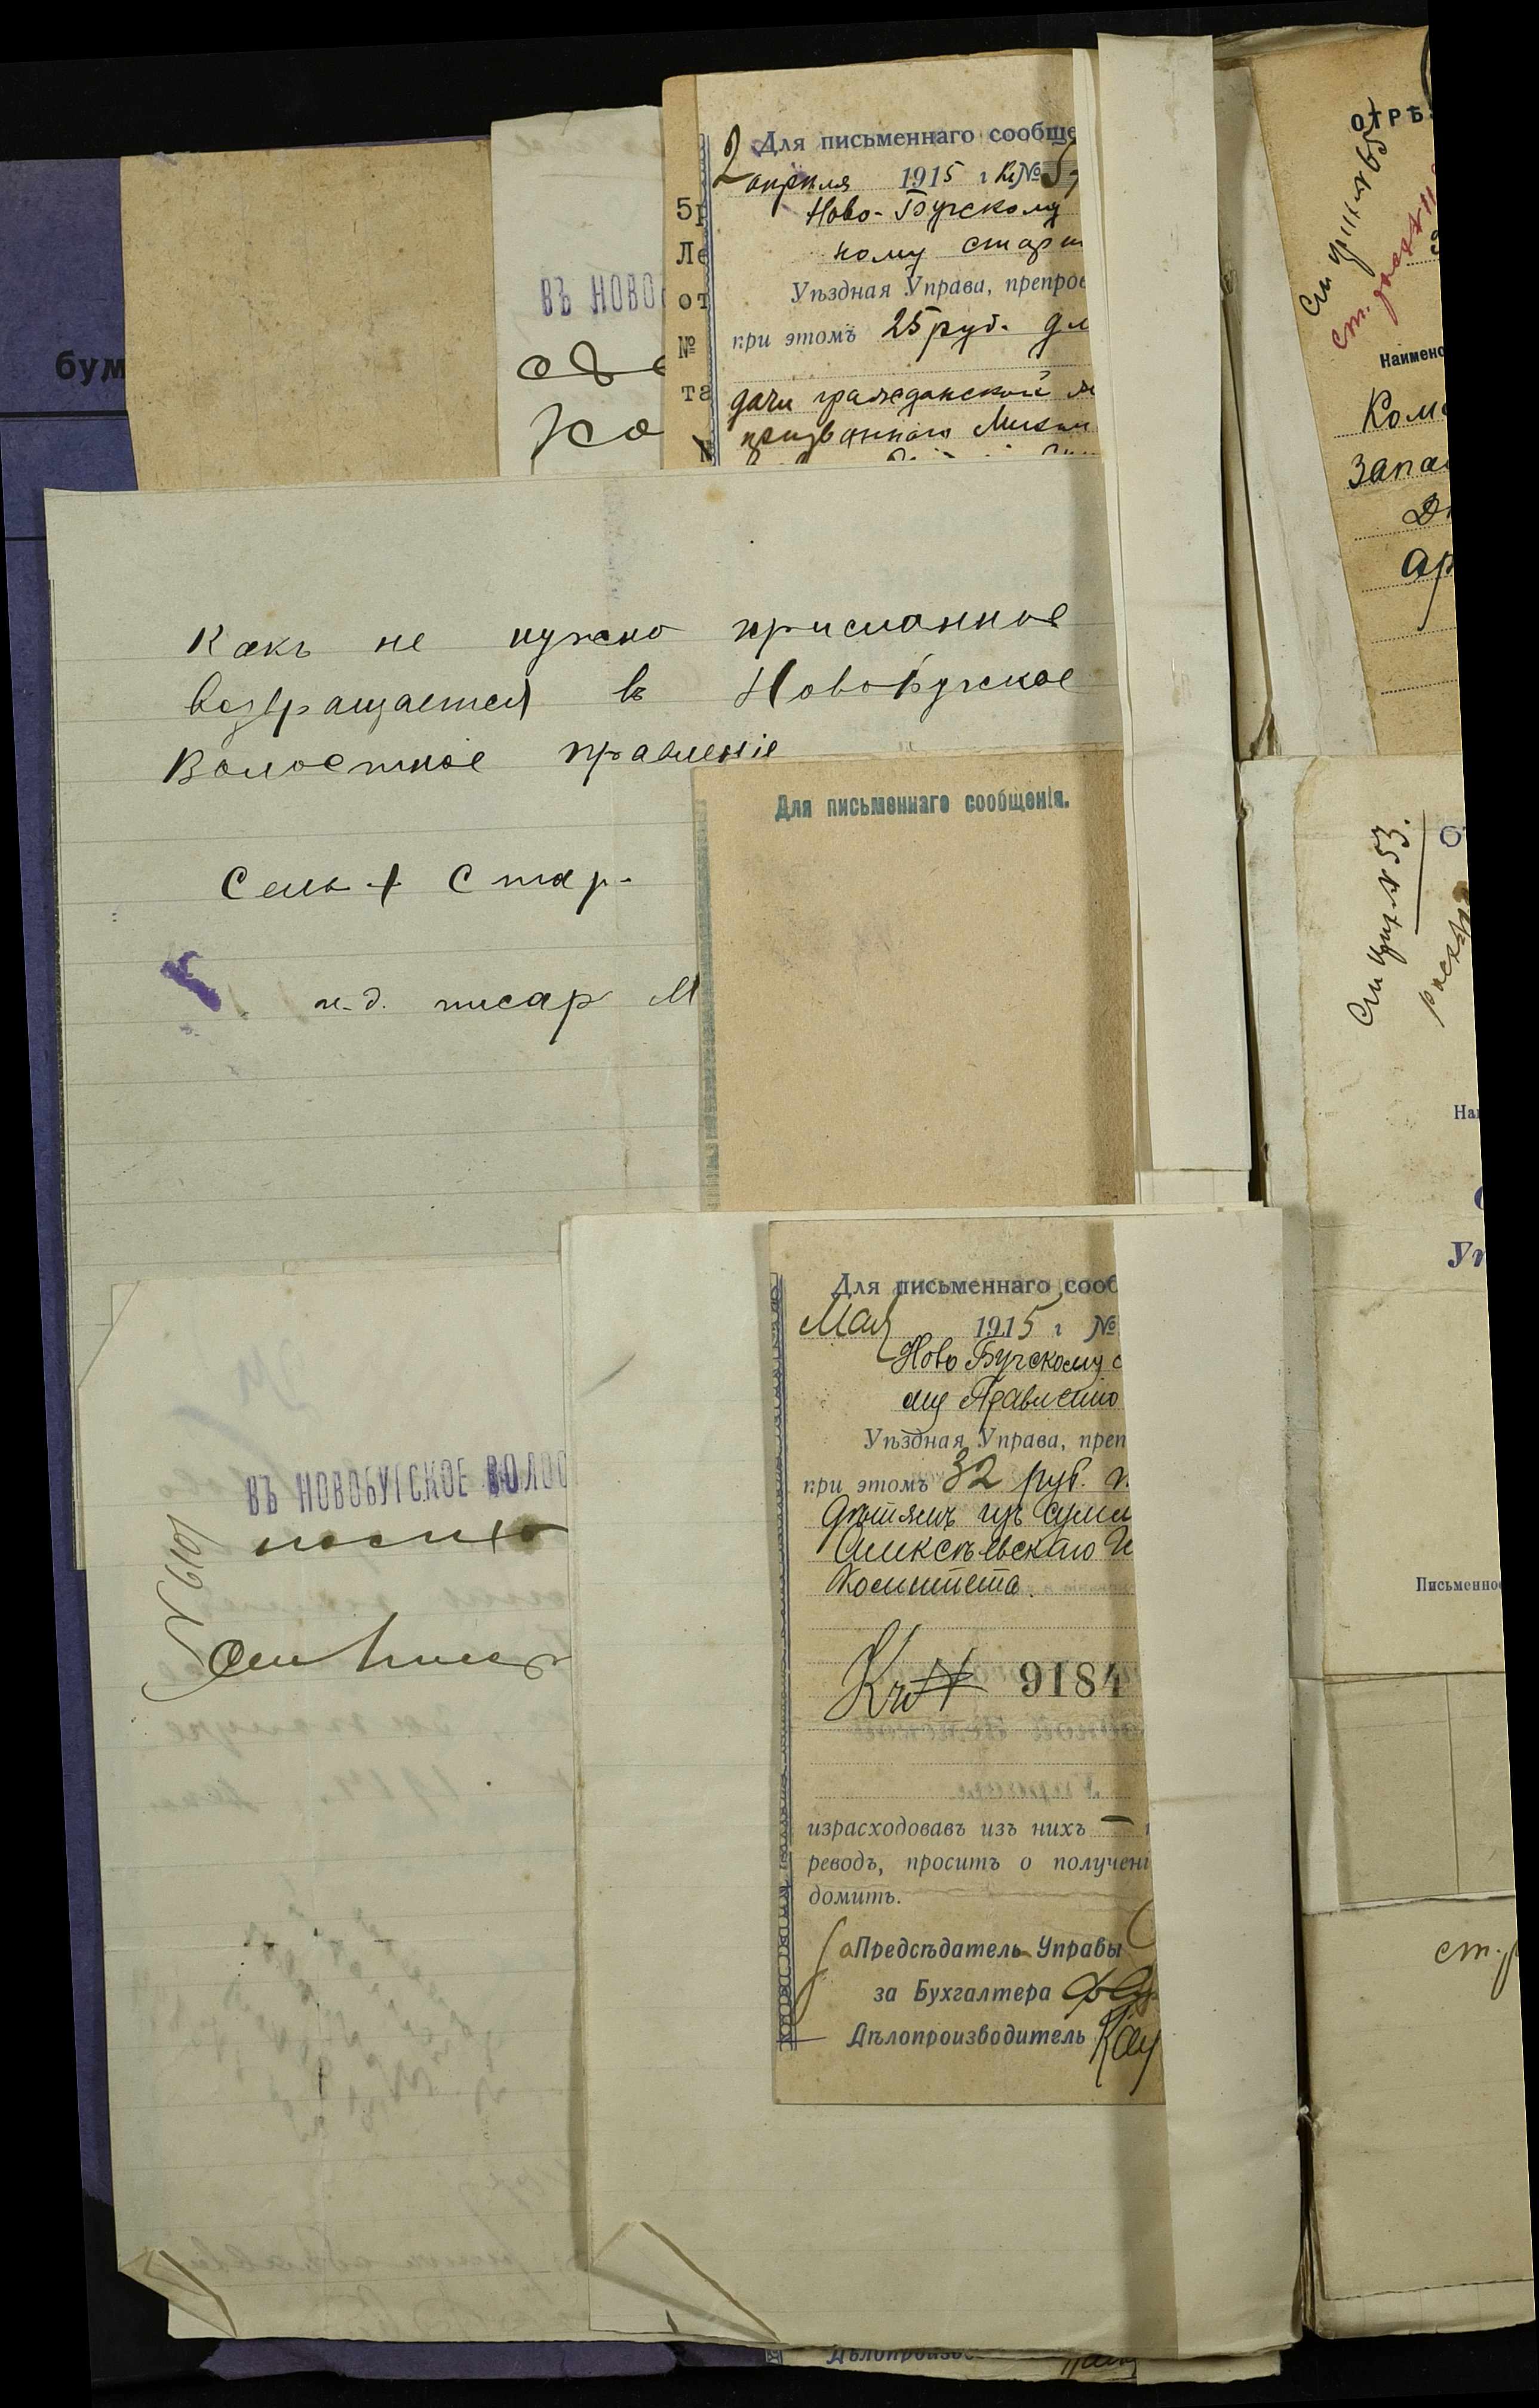 бум
ВЪ НОВО
Для письменнаго сообще
2 апрѣля 1915 г. №
Ново-Бугскому
ному стар
Уѣздная Управа, препро
при этомъ 25 руб. дл
дачи гражданской
призваннаго
5р
Ле
от
№
та
ОТРѢ
Наимено
Запа
Какъ не нужно присланное
возвращается въ Новобугское
Волостное правленіе
Сель + Стар.
и.д. писар М
Для письменнаго сообщенія.
№ 53.
ВЪ НОВОБУГСКОЕ ВОЛОС
№ 6101
Для письменнаго сооб
Мая 1915 г. №
Ново Бугскому с
му Правленію
Уѣздная Управа, преп
при этомъ 32 руб.
дѣтямъ изъ сумм
Алексѣевскаго
Комитета.
Кг № 9184
израсходовавъ изъ нихъ —
реводъ, проситъ о получені
домить.
Предсѣдатель Управы
за Бухгалтера
Дѣлопроизводитель
На
Уп
Письменно
ст.
Дѣлопроизво